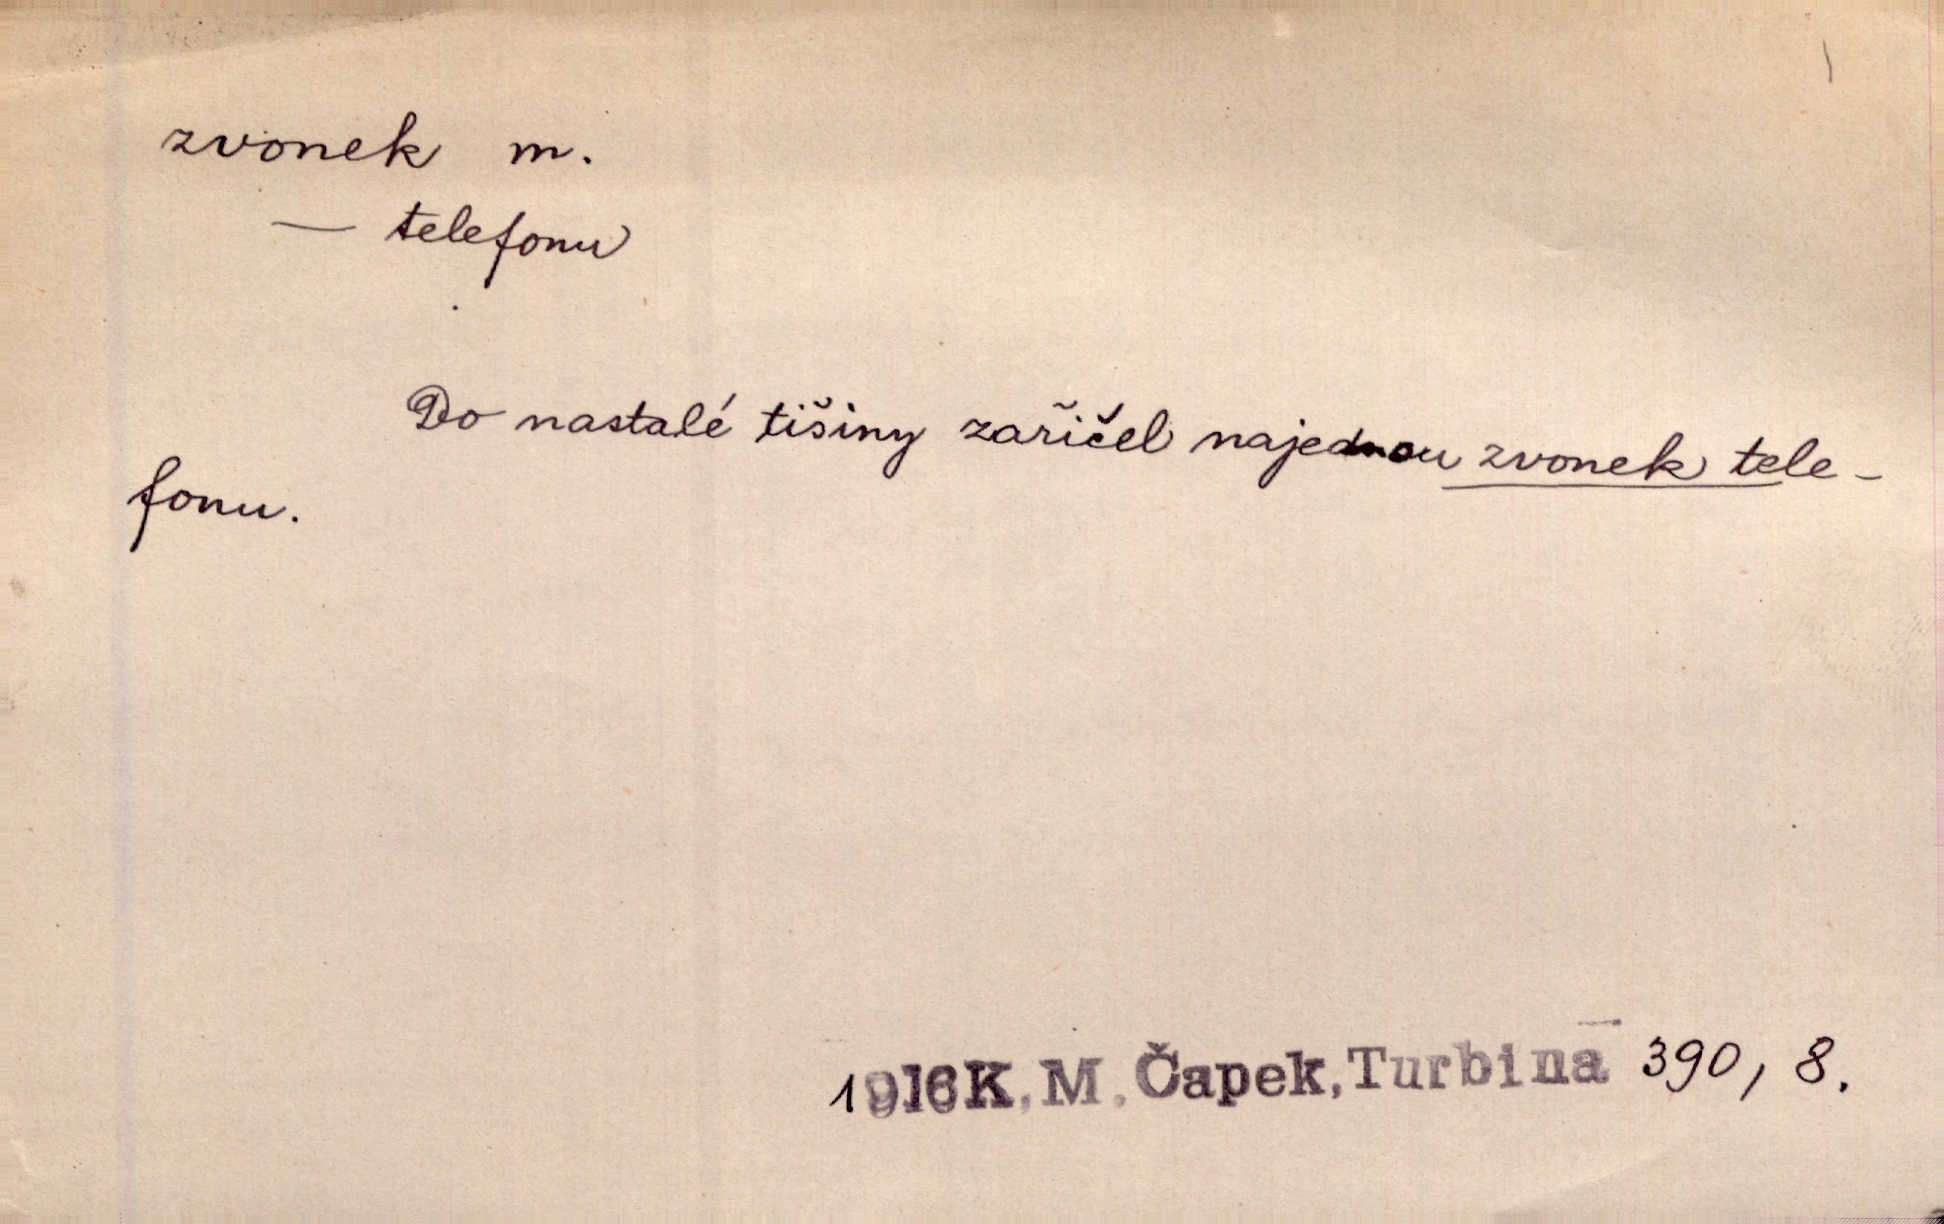 zvonek m.
— telefonu
Do nastalé tišiny zařičel najednou zvonek tele-
fonu.
1916 K. M. Čapek, Turbina 390, 8.